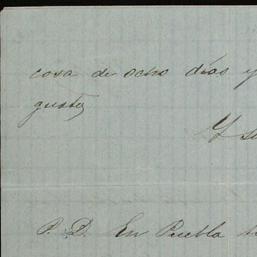 cosa de ocho días y
gusta
Y su
P. D. En Puebla